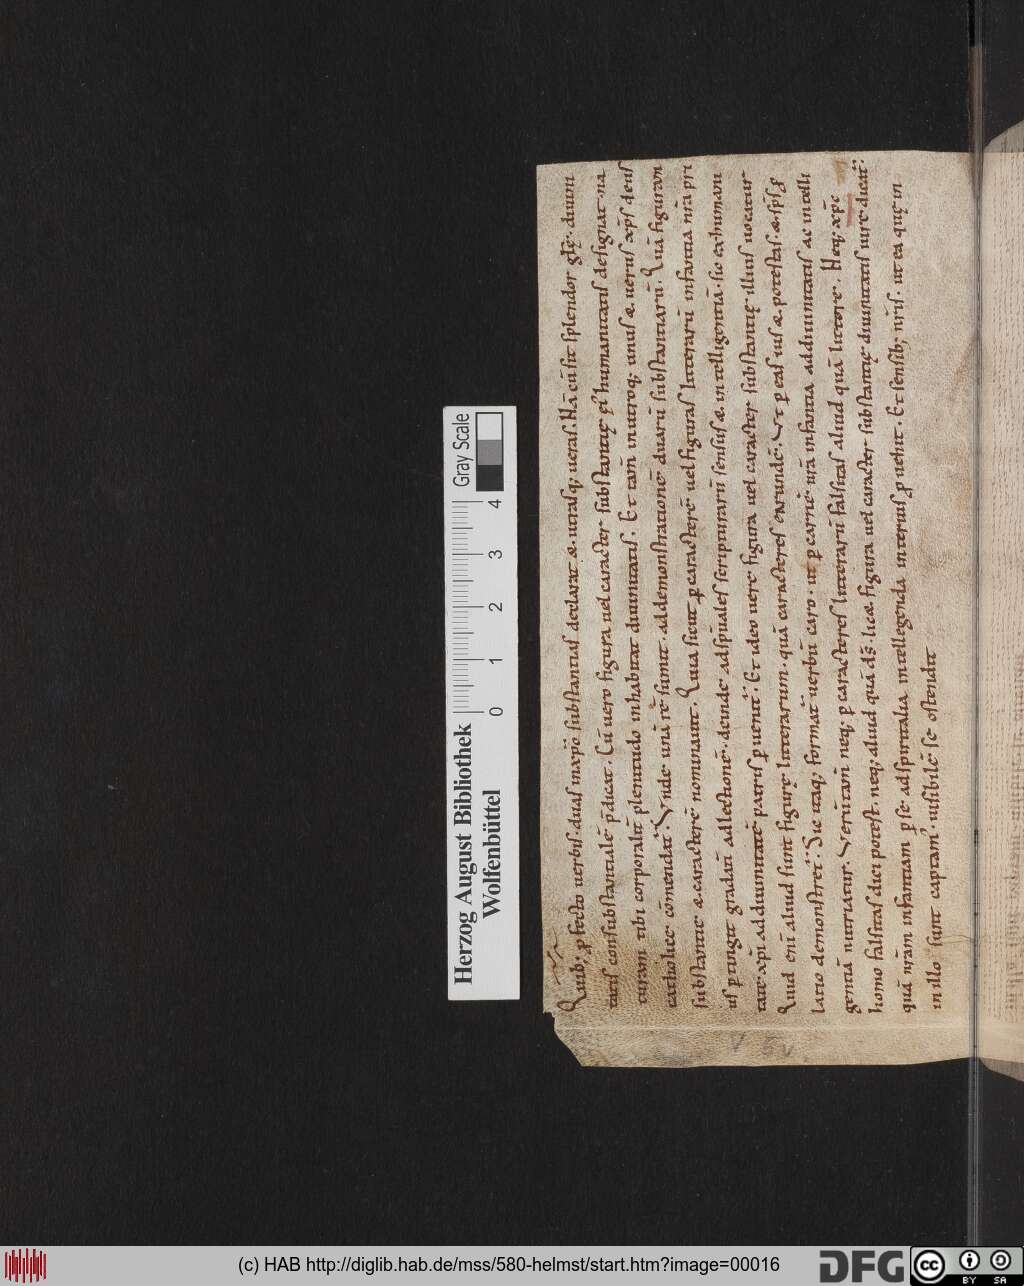 Quib; ꝑfecto uerbis. duas in xp̄o substantias declarat & utrasq; ueras. Nā cū sit splendor glę. diuini
tatis consubstantialē p̄dicat. Cū uero figura uel caracter substantię ei' humanitatis designat na
turam ubi corporalit̄ plenitudo inhabitat diuinitatis. Et tam̄ in utroq; unus & uerus xp̄s deus
catholice cōmendat̄. Vnde unā rē sumit. ad demonstrationē duarū substantiarū. Quā figuram
substantie & caracterē nominauit. Quia sicut ꝑ caracterē uel figuras litterarū infantia nr̄a pri
us ꝑtingit gradatī ad lectionē. deinde ad sp̄uales scripturarū sensus & intelligentiā. sic ex humani
tate xp̄i ad diuinitatē patris ꝑuenit̄. Et ideo uere figura uel caracter substantię illius uocatur
Aliud enī aliud sunt figurę litterarum. quā caracteres earundē. Vt ꝑ eas uis & potestas. & ips̄ꝑ
latio demonstret̄. Sic itaq; format̄ uerbū caro. ut ꝑ carnē nr̄a infantia ad diuinitatis ac intelli
gentiā nutriatur. Verūtam̄ neq; ꝑ caracteres litterarū falsitas aliud quā littere. Neq; xp̄c
homo falsitas dici potest. neq; aliud quā ds̄. licæ figura uel caracter substantię diuinitatis iure dicat̄.
quā nr̄am infantiam ꝑ se ad spiritalia intellegenda interius ꝑuehit. Et sensib; nr̄is. ut ea quę in
in illo sunt captam'. uisibilē se ostendit
V 5v
Herzog August Bibliothek
Wolfenbüttel
0 1 2 3 4
Gray Scale
(c) HAB http://diglib.hab.de/mss/580-helmst/start.htm?image=00016
DFG
cc BY SA